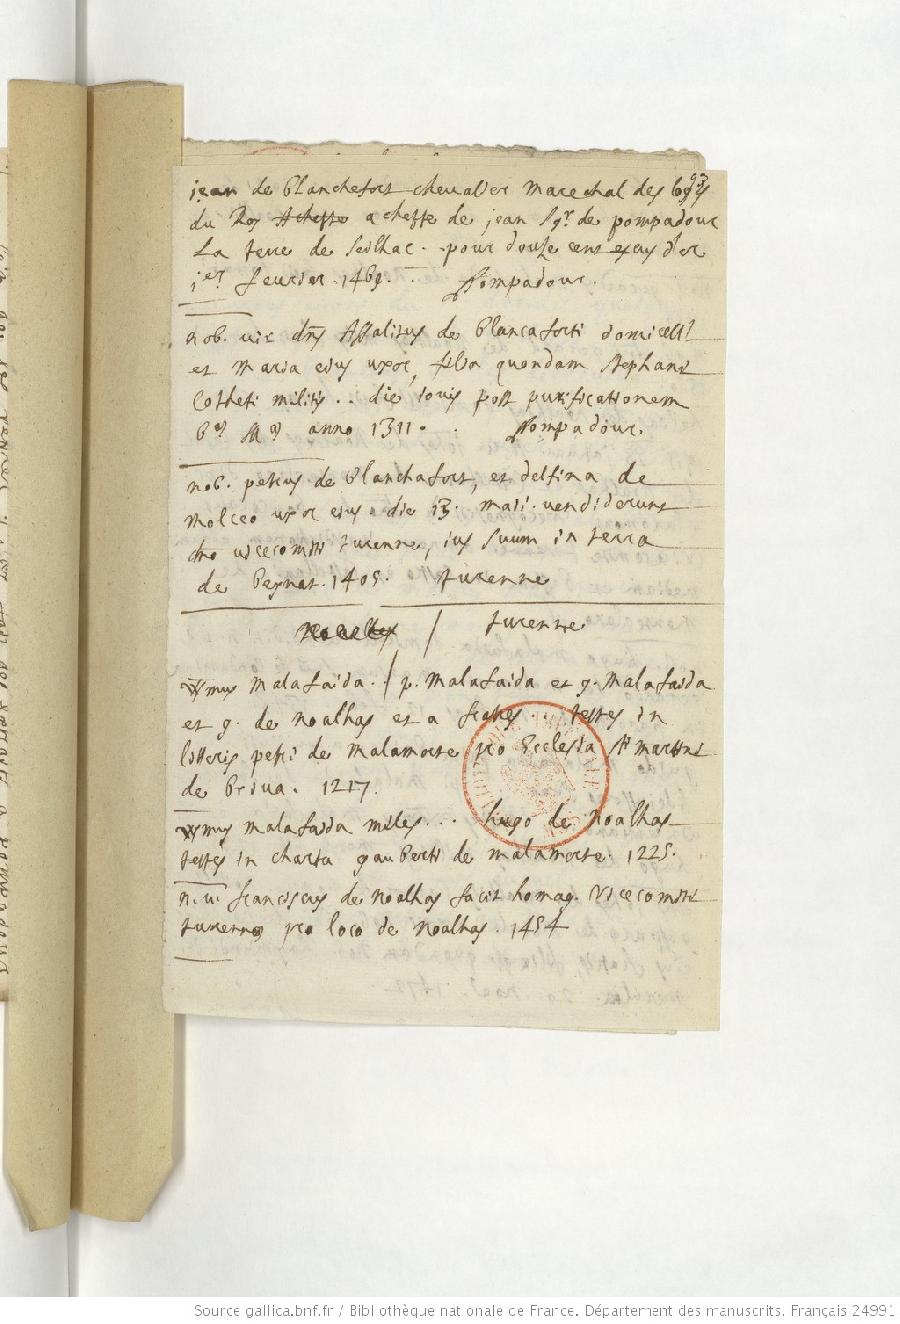 93
jean de blanchefort chevalier marechal des logis
du Roy Achepte achepte de jean Sgr de pompadour
La terre de Seilhac. pour douze cens escus d'or
jer feurier. 1469. pompadour.
nob. vir dns Assalitus de blancaforti domicell
et Maria eius uxor, filia quondam Stephani
Cotheti militis .. die iouis post purificationem
1311. pompadour.
nob. petrus de blanchafort, et delfina de
molceo uxor eius. die 13. maii. vendiderunt
dno vicecomiti turenne, ius suum in terra
de beynat. 1405. turenne
Noailles / turenne
mus Malafaida. / p. Malafaida et g. Malafaida
et g. de noalhas et a fratres .. testes in
litteris petri de malamorte pro Ecclesia St martini
de briua. 1217.
mus malafaida miles ... hugo de Noalhas
testes in charta gauberti de malamorte. 1225.
n. v. franciscus de Noalhas facit homag. Vicecomiti
turenne pro loco de Noalhas. 1454
Source gallica.bnf.fr / Bibliothèque nationale de France. Département des manuscrits. Français 24991